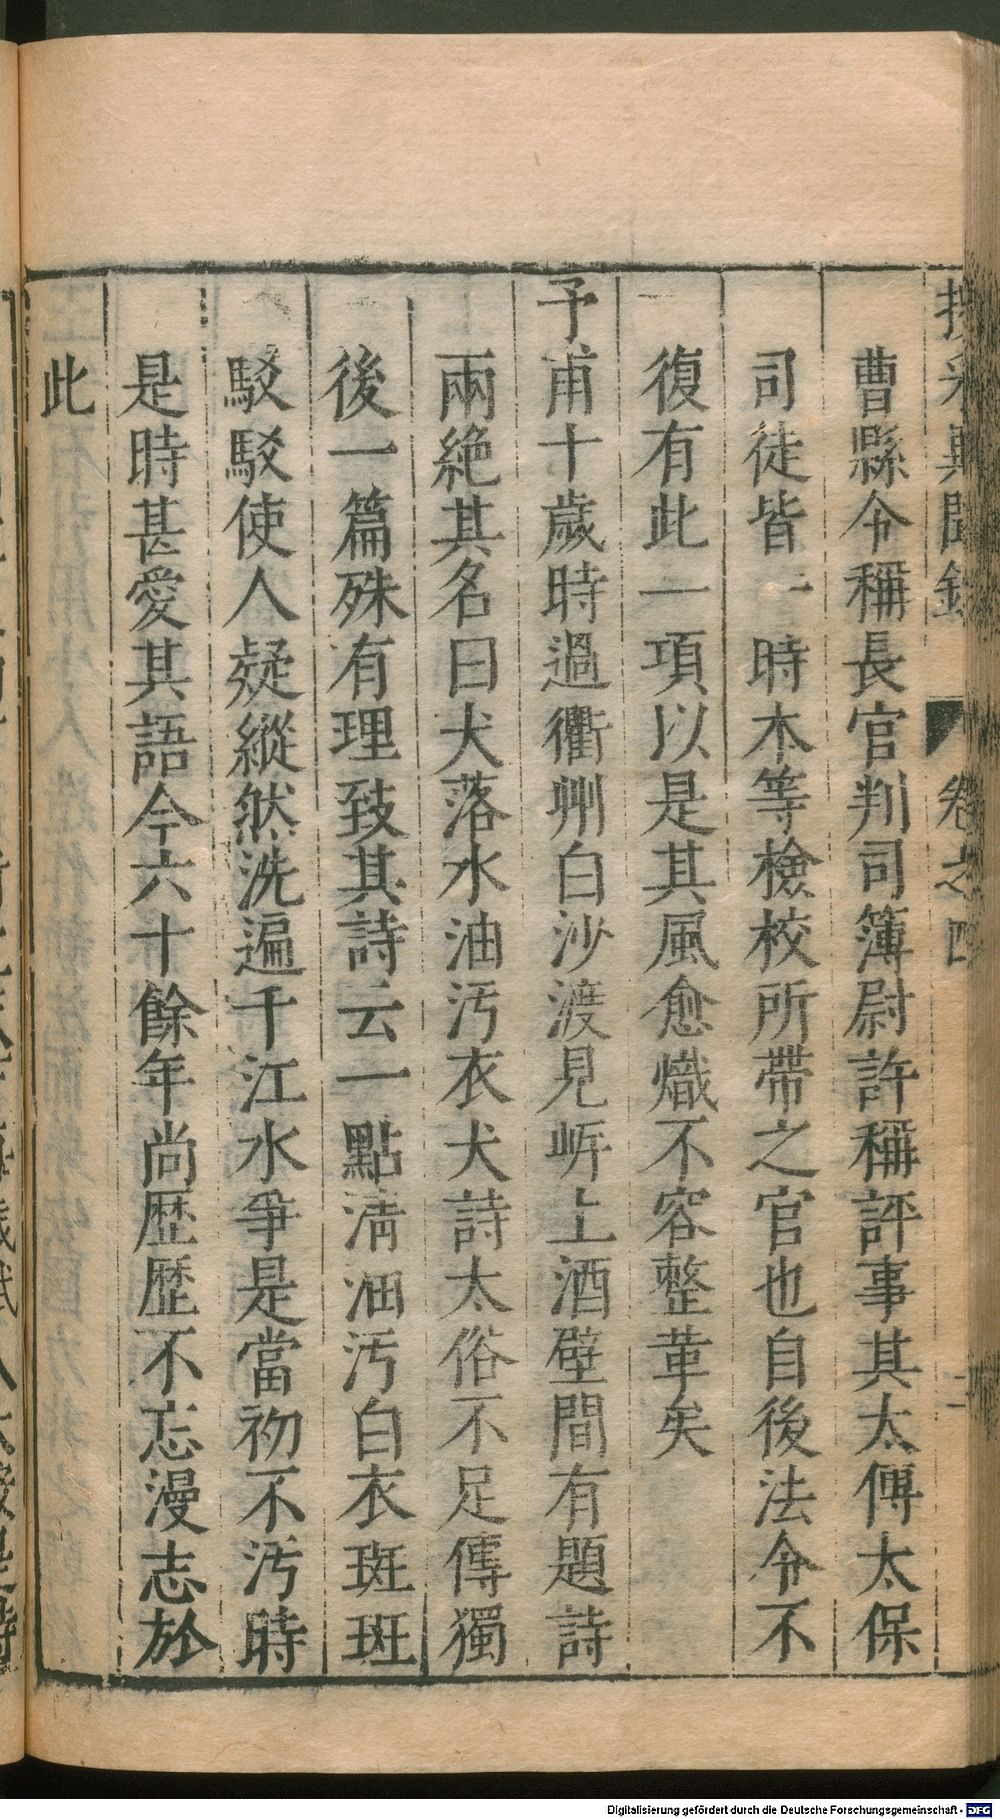 卷之四
二
曹縣令稱長官判司簿尉許稱評事其太傅太保
司徒皆一時本等檢校所帶之官也自後法令不
復有此一項以是其風愈熾不容整革矣
予甫十歲時過衢州白沙渡見岍上酒壁間有題詩
兩絶其名曰犬落水油汚衣犬詩太俗不足傳獨
後一篇殊有理致其詩云一點淸油汚白衣斑斑
駁駁使人疑縱然洗遍千江水爭是當初不汚時
是時甚愛其語今六十餘年尚歴歴不忘漫志於
此
Digitalisierung gefördert durch die Deutsche Forschungsgemeinschaft - DFG